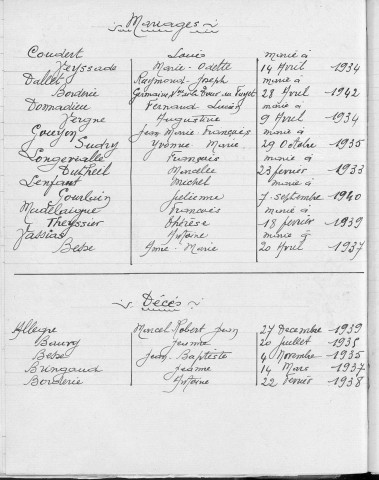 Mariages
Coudert Louis marié à
Veyssade Marie-Odette 14 Avril 1934
Vallet Raymond-Joseph marié à
Borderie Germaine 28 Avril 1942
Donnadieu Fernand Lucien marié à
Vergne Augustine 9 Avril 1934
Gouyon Jean Marie François marié à
Sudry Yvonne Marie 29 Octobre 1935
Longevialle François marié à
Dutheil Marcelle 23 février 1933
Lenfant Michel marié à
Gourbain Julienne 7 septembre 1940
Madelaigue François marié à
Theyssier Thérèse 18 février 1939
Vassias Antoine marié à
Besse Anne-Marie 20 Avril 1937
Décès
Allegre Marcel-Robert Jean 27 Décembre 1939
Beury Jeanne 20 Juillet 1935
Besse Jean Baptiste 4 Novembre 1935
Bringaud Jeanne 14 Mars 1937
Borderie Antoine 22 Février 1938